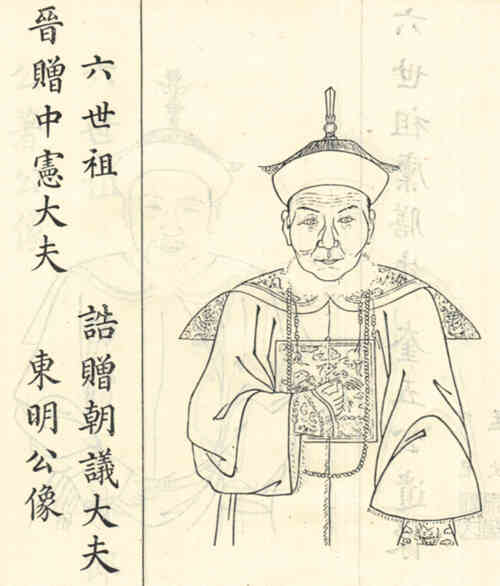 六世祖 誥贈朝議大夫
晉贈中憲大夫 東明公像